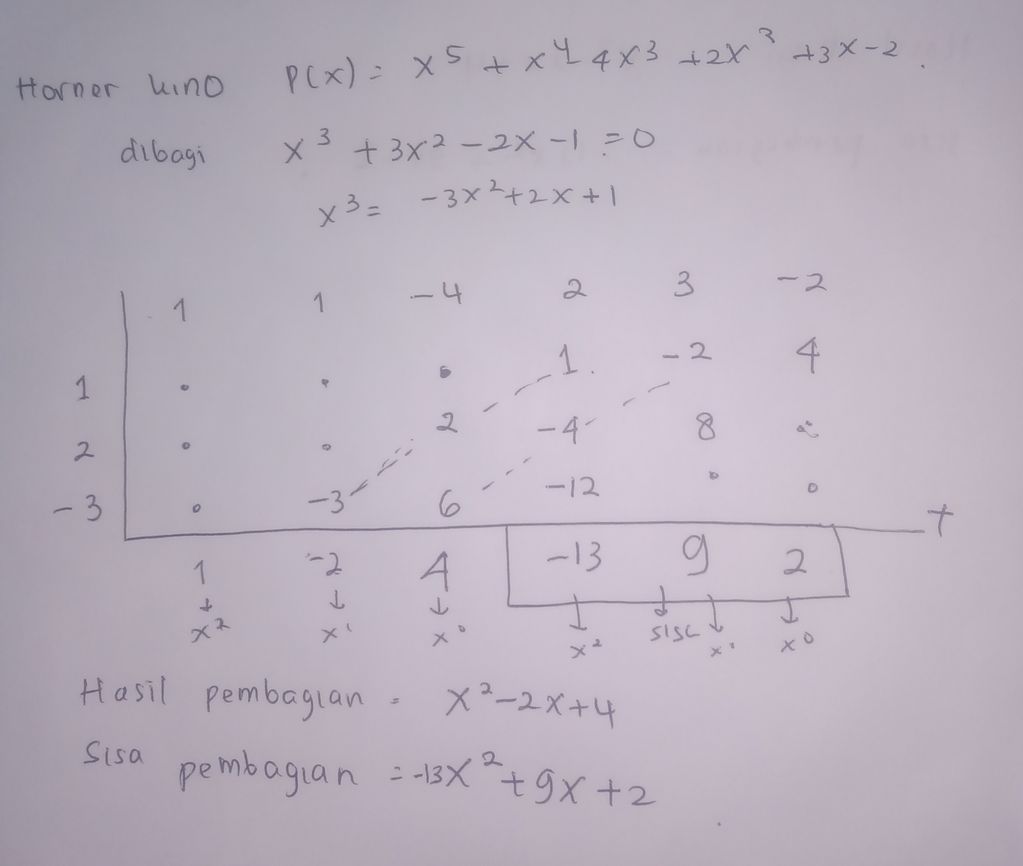 Horner kino P(x) = x⁵ + x⁴ 4x³ +2x³ +3x-2.
dibagi x³ + 3x² - 2x - 1 = 0
x³ = -3x²+2x+1
1 1 -4 2 3 -2
1 1. -2 4
2 2 -4 8
-3 -3 6 -12 +
1 -2 4 -13 9 2
x² x¹ x⁰ x² sisa x¹ x⁰
Hasil pembagian = x²-2x+4
Sisa pembagian = -13x²+9x+2